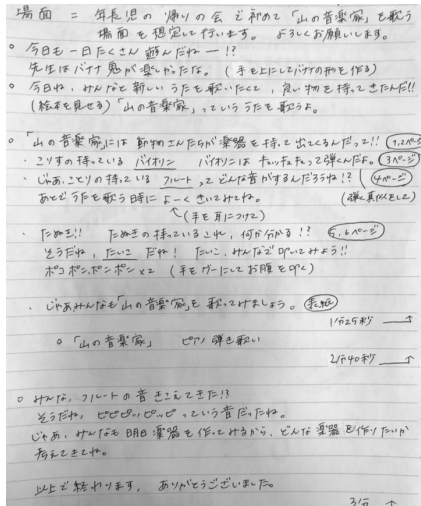 場面 = 年長児の 帰りの会で初めて「山の音楽家」を歌う
場面を想定して行います。 よろしくお願いします。
○ 今日も一日たくさん 遊んだねー!?
先生はバナナ鬼が楽しかったな。(手を上にしてバナナの形を作る)
○ 今日ね、みんなと新しい うたを歌いたくて、良い物を持ってきたんだ!!
(絵本を見せる)「山の音楽家」っていう うたを歌うよ。
○ 「山の音楽家」には 動物さんたちが楽器を持って出てくるんだって!! 1,2ページ
・ こりすの持っている バイオリン バイオリンは キュッキュキュッって弾くんだよ。 3ページ
・ じゃあ、ことりの持っている フルート ってどんな音がするんだろうね!? 4ページ
あとでうたを歌う時に よーくきいてみてね。 (弾く真似をして)
↑(手を耳につけて)
・ たぬき!! たぬきの持っているこれ、何か分かる!? 5,6ページ
そうだね、たいこ だね! たいこ、みんなで叩いてみよう!!
ポコポンポンポン ×2 (手をグーにしてお腹を叩く)
・ じゃあみんなも「山の音楽家」を歌ってみましょう。 表紙
1分25秒
○ 「山の音楽家」 ピアノ弾き歌い
2分40秒
○ みんな、フルートの音きこえてきた!?
そうだね、ピピピッピッピ っていう音だったね。
じゃあ、みんなも明日楽器を作ってみるから、どんな楽器を作りたいか
考えてきてね。
以上で終わります。 ありがとうございました。
3分